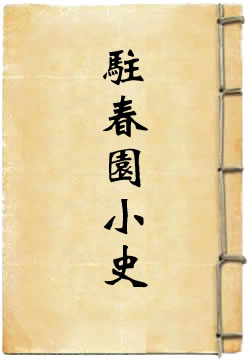 駐春園小史